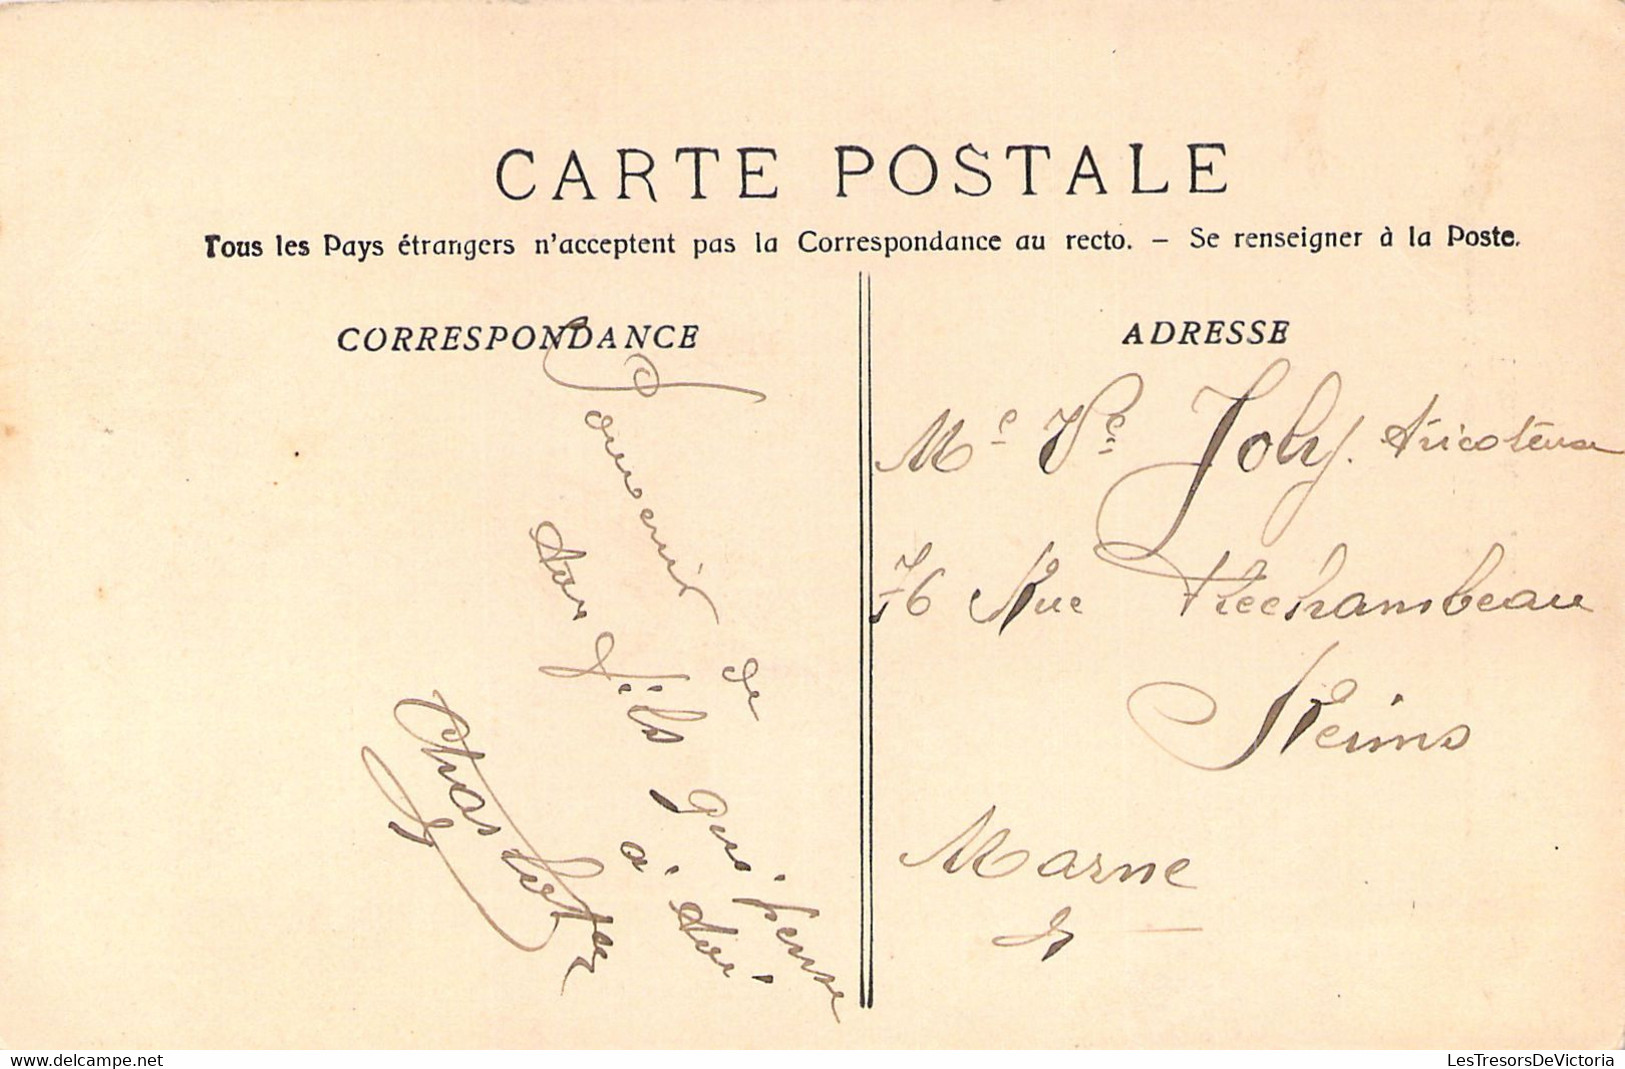 CARTE POSTALE
Tous les Pays étrangers n'acceptent pas la Correspondance au recto. — Se renseigner à la Poste.
CORRESPONDANCE
Souvenir de
ton fils qui pense
à toi
ADRESSE
Me Ve Joly. tricoteuse
76 Rue Rechambeau
Reims
Marne
delcampe.net
LesTresorsDeVictoria